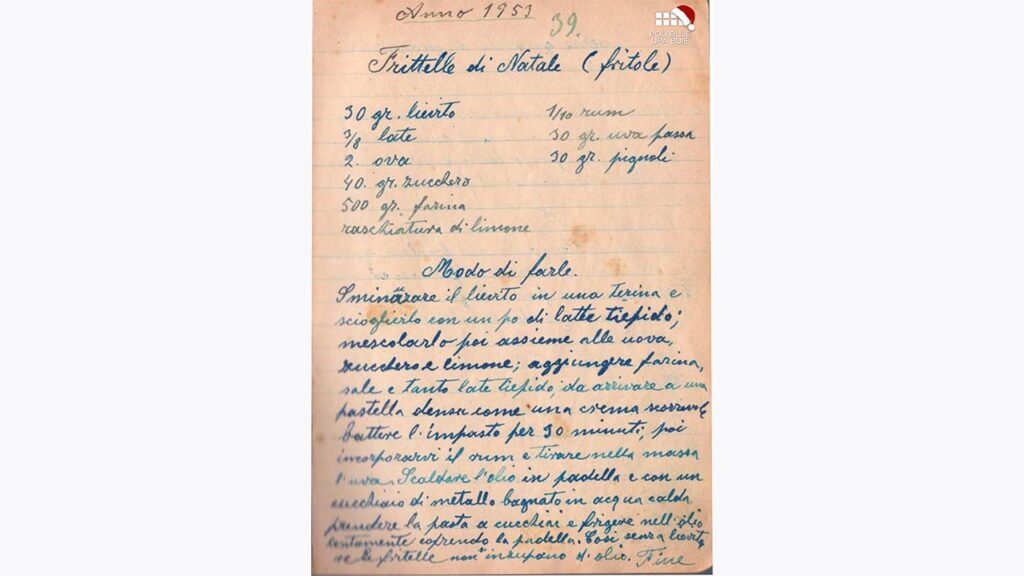 Anno 1953
39.
POU BUJE
UPA BUIE
Frittelle di Natale (fritole)
30 gr. lievito
3/8 late
2. ova
40. gr. zucchero
500 gr. farina
raschiatura di limone
1/10 rum
30 gr. uva passa
30 gr. pignoli
Modo di farle.
il lievito in una terina e
scioglierlo con un po di latte tiepido;
mescolarlo poi assieme alle uova,
zucchero e limone; aggiungere farina,
sale e tanto late tiepido, da arrivare a una
pastella densa come una crema
battere l'impasto per 30 minuti, poi
incorporarvi il rum e tirare nella massa
l'uva. Scaldare l'olio in padella e con un
cucchiaio di metallo bagnato in acqua calda
prendere la pasta a cucchiai e frigere nell'olio
lentamente coprendo la padella. Cosi senza
le fritelle non inzupano d'olio. Fine